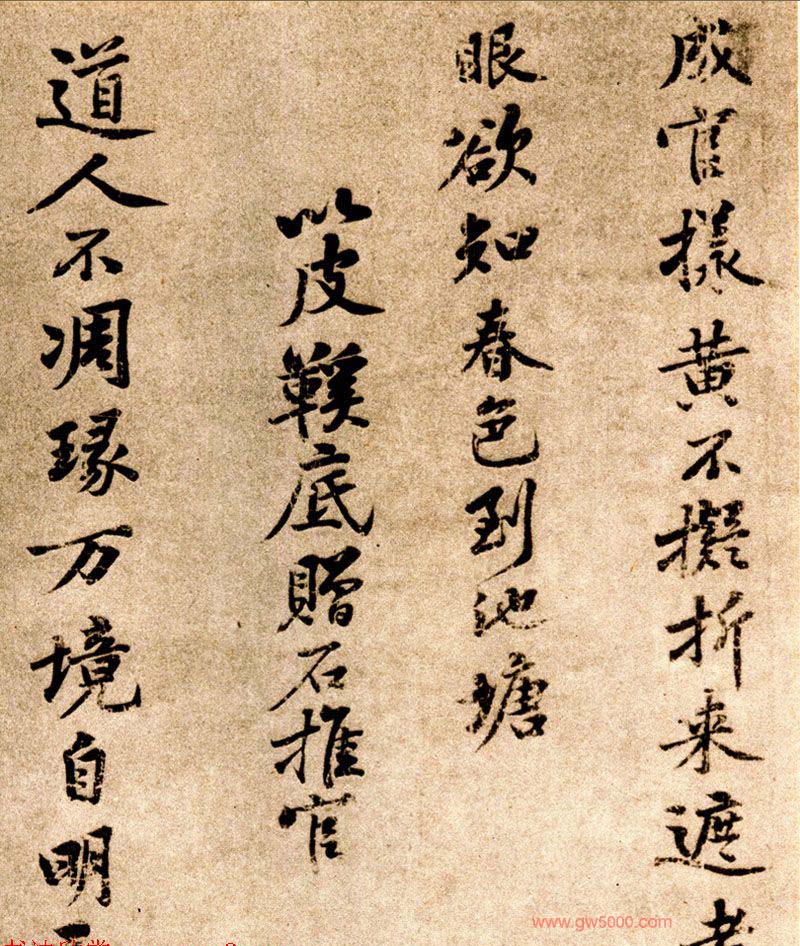 成宫樣黃不擬折来遮老
眼欲知春色到池塘
以皮鞵底贈石推官
道人不凋琢万境自明
www.gw5000.com